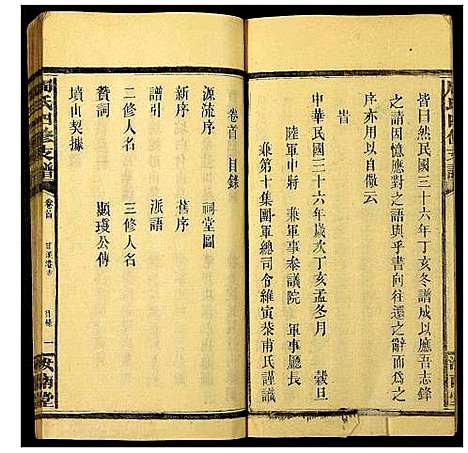 皆曰然民國三十六年丁亥冬譜成以應吾志鋒
之請因憶應對之語與乎書向往還之辭而為之
序亦用以自儆云
旹
中華民國三十六年歲次丁亥孟冬月 穀旦
陸軍中將 兼軍事參議院 軍事廳長
兼第十集團軍總司令維寅榮甫氏謹識
卷首 目錄
源流序 祠堂圖
新序 舊序
譜引 派語
二修人名 三修人名
贊詞 顯璞公傳
墳山契據
周氏四修支譜
卷首
目錄
一
汝南堂